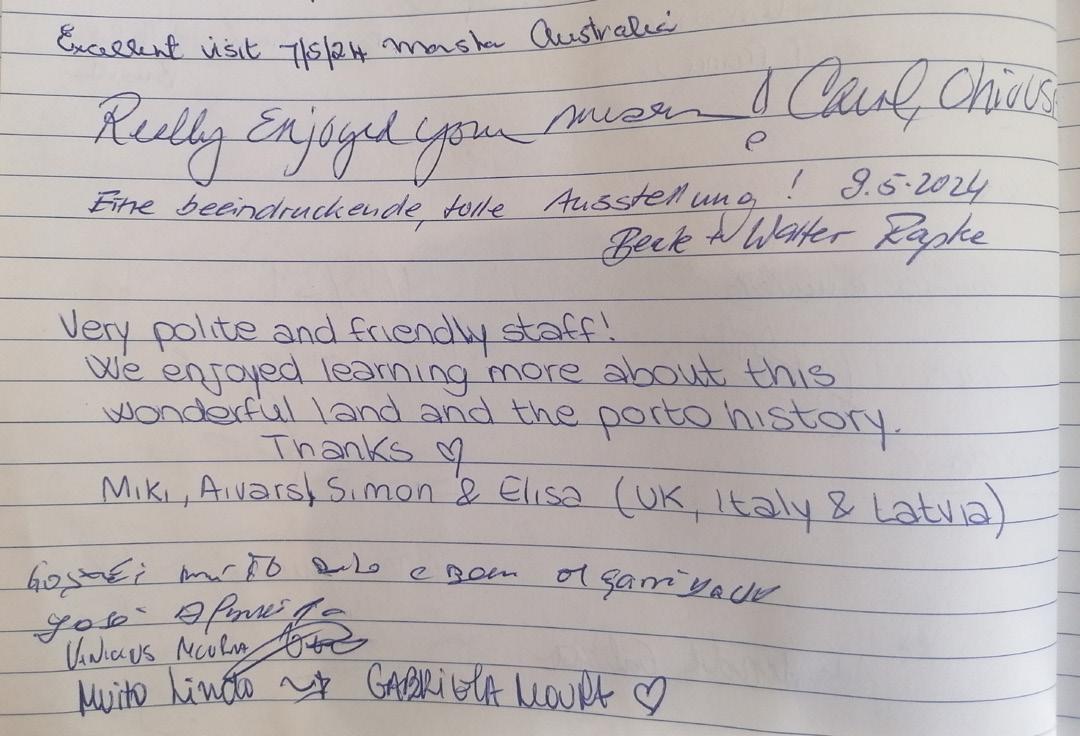 Excellent visit 7/5/24 Marsha Australia
Really Enjoyed your museum ! Carol, Ohio USA
Eine beeindruckende, tolle Ausstellung! 9.5.2024
Walter Rapke
Very polite and friendly staff!
We enjoyed learning more about this
wonderful land and the porto history.
Thanks ♡
Miki, Aivars, Simon & Elisa (UK, Italy & Latvia)
Gostei muito e bem
Vinicius Moura
Muito lindo GABRIELA MOURA ♡